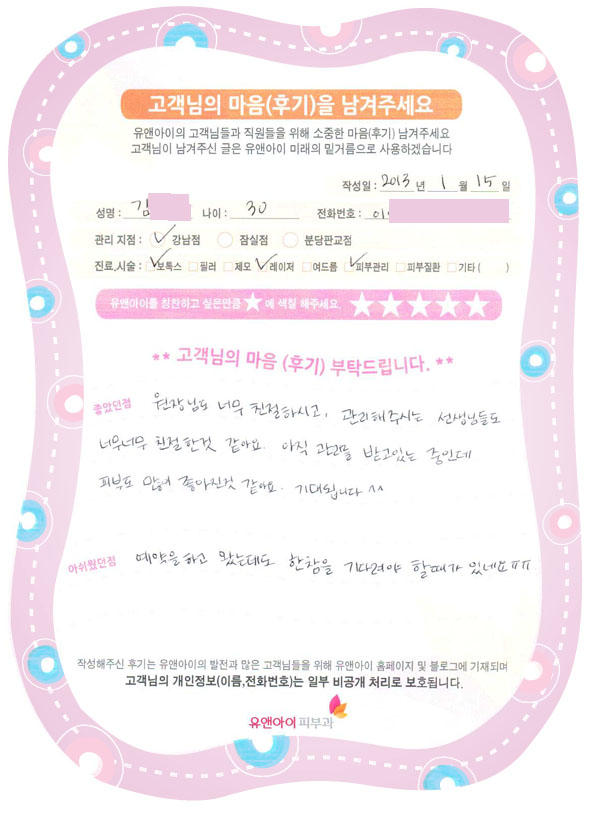 고객님의 마음(후기)을 남겨주세요
유앤아이의 고객님들과 직원들을 위해 소중한 마음(후기) 남겨주세요
고객님이 남겨주신 글은 유앤아이 미래의 밑거름으로 사용하겠습니다
작성일 : 2013 년 1 월 15 일
성명 : 김 나이 : 30 전화번호 : 01
관리 지점 : 강남점 잠실점 분당판교점
진료,시술 : 보톡스 필러 제모 레이저 여드름 피부관리 피부질환 기타 ( )
유앤아이를 칭찬하고 싶은만큼 ★ 에 색칠 해주세요 ★★★★★
** 고객님의 마음 (후기) 부탁드립니다. **
좋았던점 원장님도 너무 친절하시고, 관리해주시는 선생님들도
너무너무 친절한것 같아요. 아직 관리를 받고있는 중인데
피부도 많이 좋아진것 같아요. 기대됩니다 ^^
아쉬웠던점 예약을하고 왔는데도 한참을 기다려야 할때가 있네요ㅠㅠ
작성해주신 후기는 유앤아이의 발전과 많은 고객님들을 위해 유앤아이 홈페이지 및 블로그에 기재되며
고객님의 개인정보(이름,전화번호)는 일부 비공개 처리로 보호됩니다.
유앤아이 피부과